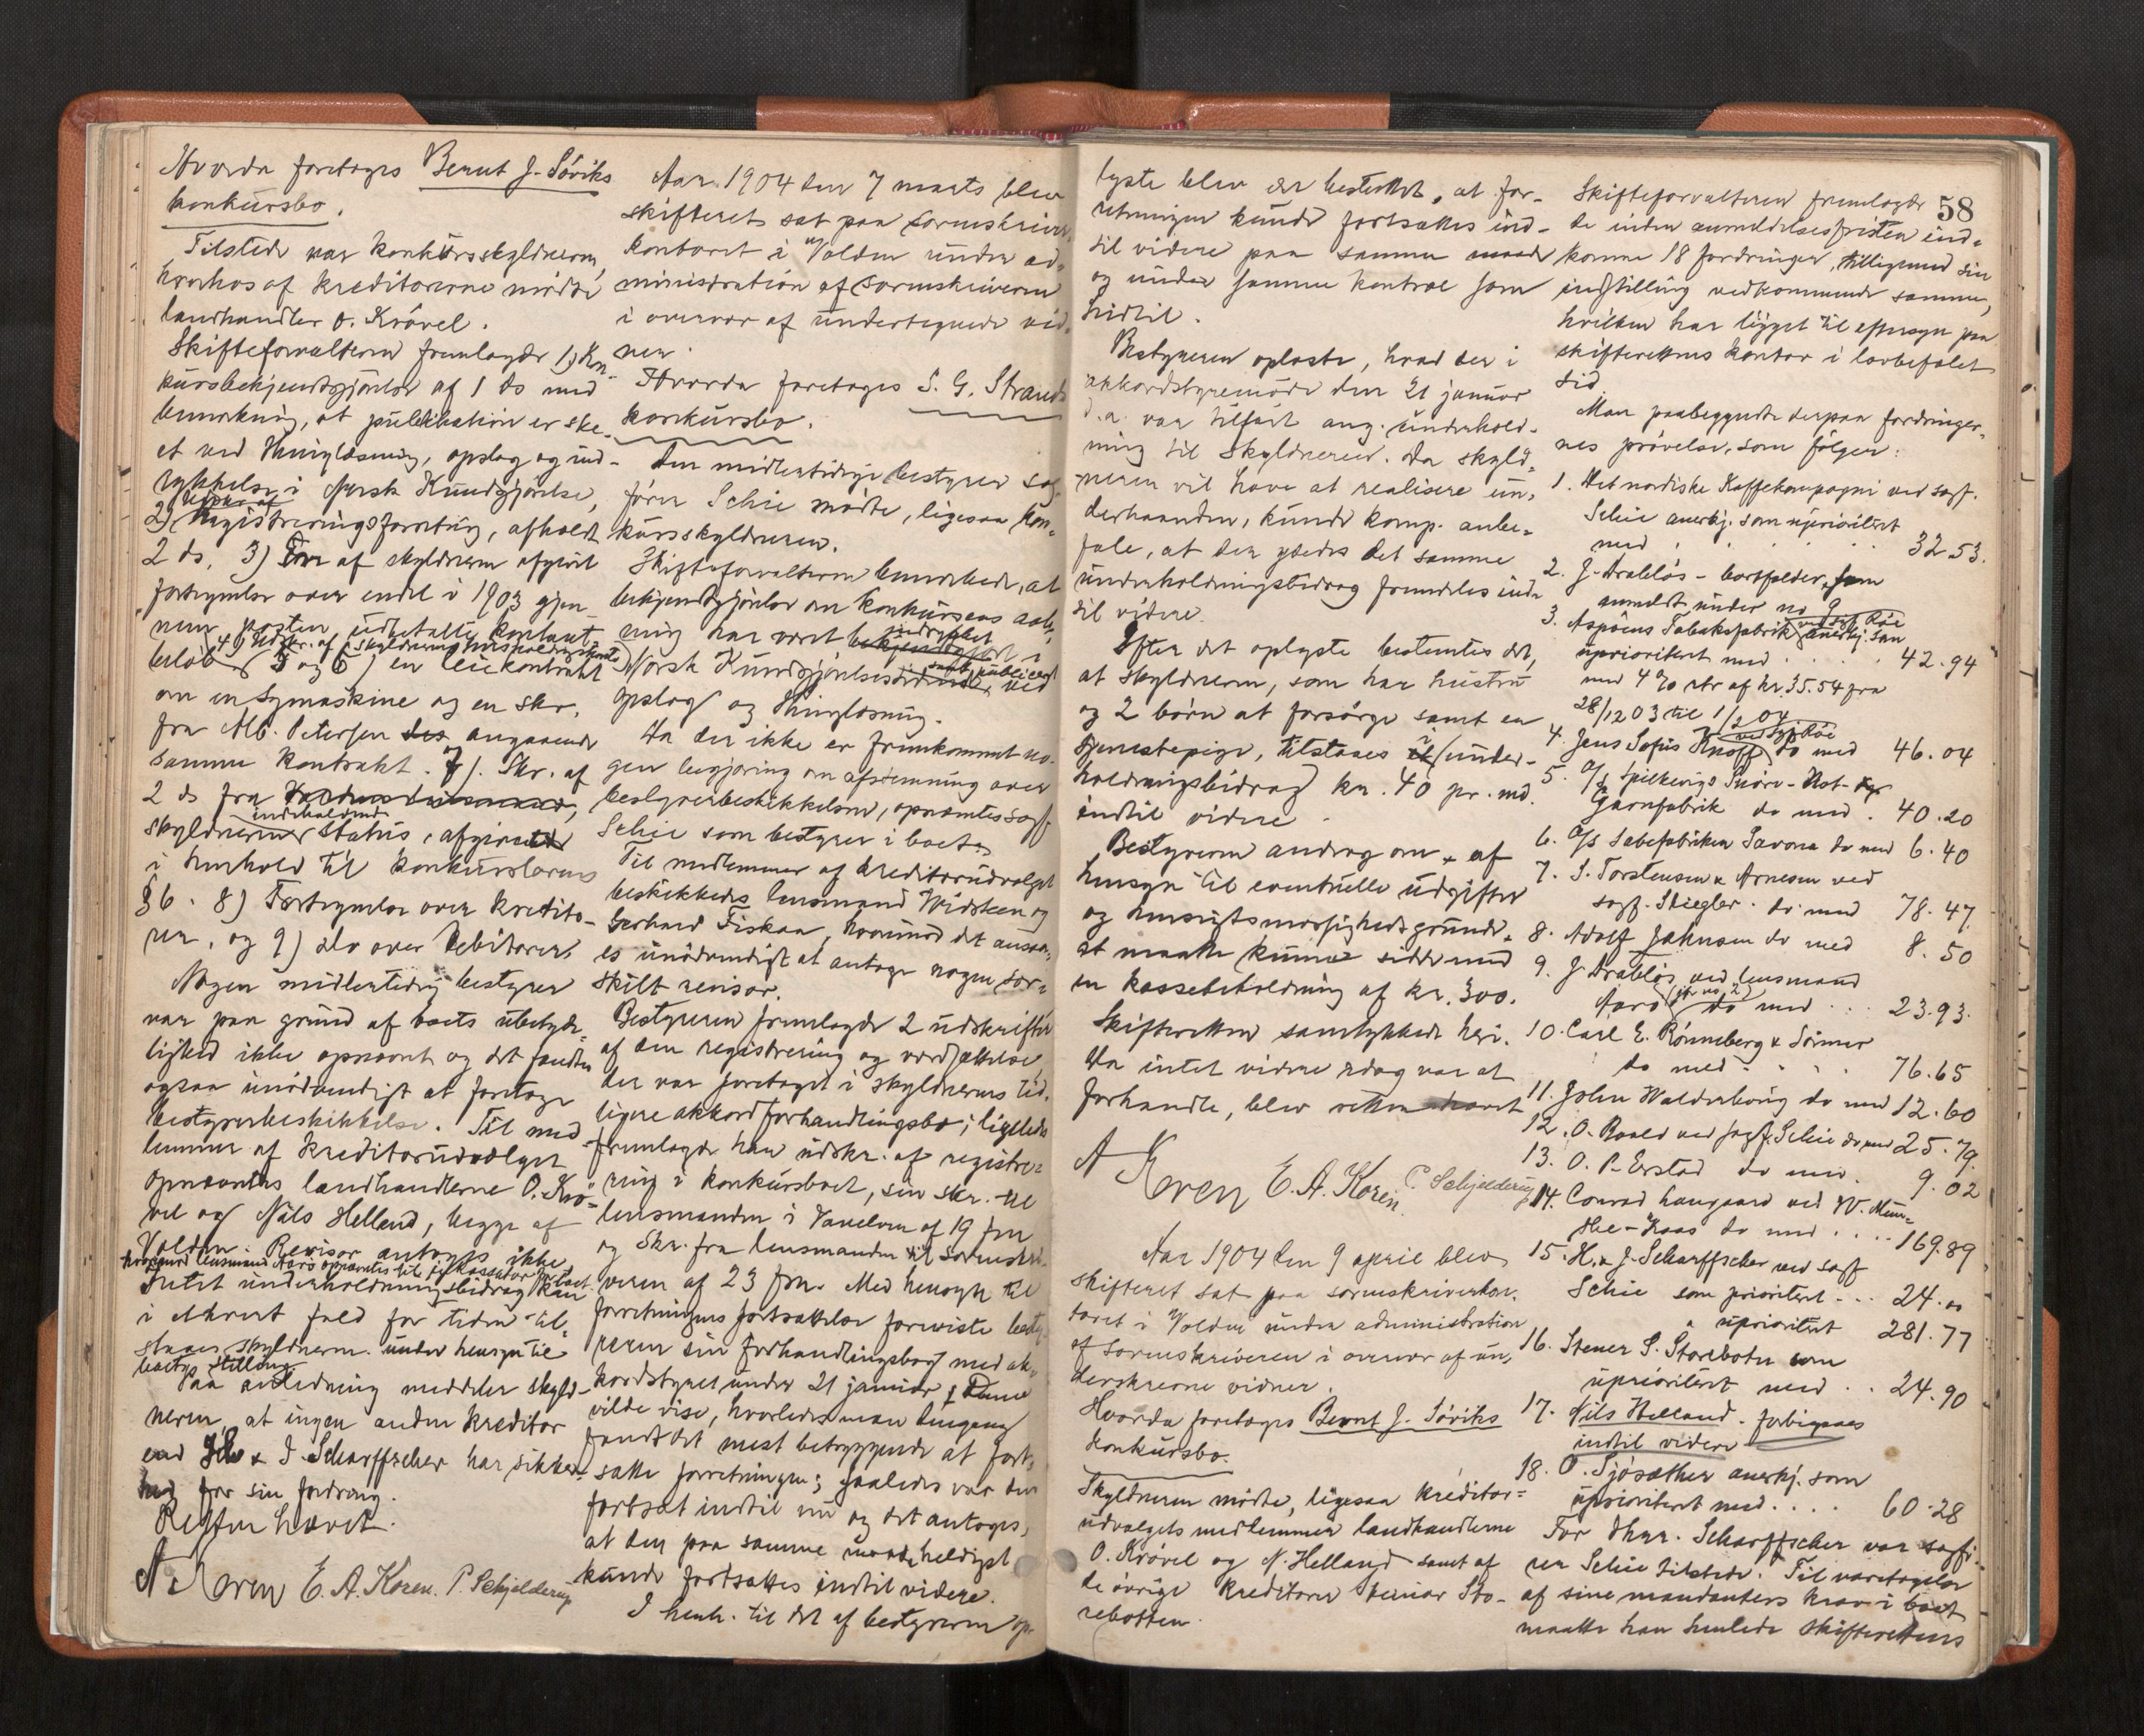 Hvorda foretoges Bernt J. Söviks
konkursbo.
Tilstede var konkursskyldneren,
hvorhos af kreditorerne mödte
landhandler O. Krövel.
Skifteforvalteren fremlagde 1) Kon-
kursbekjendtgjörelse af 1 ds med
bemerkning, at publikation er ske-
et ved thinglæsning, opslag og ind-
rykkelse i Norsk Kundgjörelse,
2) Udskr. af
Registreringsforretng, afholdt
2 ds, 3) af skyldneren afgivet
fortegnelse over endel i 1903 gjen-
nem posten udbetalte kontant
4) Udskr. af skyldnerens
belöb 5 og 6) en leiekontrakt
om en symaskine og en skr.
fra Alb. Petersen angaaende
samme kontrakt. 7). Skr. af
2 ds fra
indeholdende
skyldnerens status, afgivet
i henhold til konkurslovens
§ 6. 8) Fortegnelse over kredito-
rer, og 9) do over debitorer.
Nogen midlertidig bestyrer
var paa grund af boets ubetyde-
lighed ikke opnævnt og det fandtes
ogsaa unödvendigt at foretage
bestyrerbeskikkelse. Til med-
lemmer af kreditorudvalget
opnævntes landhandlerne O. Krö-
vel og Nils Helland, begge af
Volden. Revisor antoges ikke
hvorimod lensmand Aarö opnævntes til kassator for boet
Intet underholdningsbidrag kan
i ethvert fald for tiden til-
staaes skyldneren under hensyn til
boets stilling
Paa anledning meddeler skyld-
neren, at ingen anden kreditor
end H. & J. Scharffscher har sikker-
hed for sin fordring.
Retten hævet.
A Koren E. A. Koren. P. Schjelderup
Aar 1904 den 7 marts blev
skifteret sat paa sorenskriver-
kontoret i Volden under ad-
ministration af sorenskriveren
i overvær af undertegnede vid-
ner.
Hvorda foretoges S. G. Strands
konkursbo.
Den midlertidige bestyrer sag-
förer Schie mödte, ligesaa kon-
kursskyldneren.
Skifteforvalteren bemerkede, at
bekjendtgjörelse om konkursens aab-
ning har været indrykket i
Norsk Kundgjörelsestidende, samt publiceret ved
opslag og thinglæsning.
Da der ikke er fremkommet no-
gen begjæring om afstemning over
bestyrerbeskikkelsen, opnævntes sagf
Schie som bestyrer i boet.
Til medlemmer af kreditorudvalget
beskikkedes lensmand Vidsteen og
Gerhard Fiskaa, hvorimod det ansaa-
es unödvendigt at antage nogen sær-
skilt revisor.
Bestyreren fremlagde 2 udskrifter
af den registrering og værdsættelse
der var foretaget i skyldnerens tid-
ligere akkordforhandlingsbo; ligeledes
fremlagde han udskr. af registre-
ring i konkursboet, sin skr. til
lensmanden i Vanelven af 19 fm
og skr. fra lensmanden til sorenskri-
veren af 23 fm. Med hensyn til
forretningens fortsættelse foreviste besty-
reren sin forhandlingsbog med ak-
kordstyret under 21 januar. Denne
vilde vise, hvorledes man dengang
fandt det mest betryggende at fort-
sætte forretningen; saaledes var den
fortsat indtil nu og det antoges,
at den paa samme maade heldigst
kunde fortsættes indtil videre.
I henh. til det af bestyreren op-
58
lyste blev det besluttet, at for-
retningen kunde fortsættes ind-
til videre paa samme maade
og under samme kontrol som
hidtil.
Bestyreren oplæste, hvad der i
akkordstyremöde den 21 januar
d.a. var tilfört ang. underhold-
ning til skyldneren. Da skyld-
neren vil have at realisere un-
derhaanden, kunde komp. anbe-
fale, at der ydedes det samme
underholdningsbidrag fremdeles ind-
til videre.
Efter det oplyste bestemtes det,
at skyldneren, som har hustru
og 2 börn at forsörge samt en
tjenestepige, tilstaaes i under-
holdningsbidrag kr. 40 pr. md.
indtil videre.
Bestyreren androg om, af
hensyn til eventuelle udgifter
og hensigtsmæssighedsgrunde,
at maatte kunne sidde med
en kassebeholdning af kr. 300.
Skifteretten samtykkede heri.
Da intet videre idag var at
forhandle, blev retten hævet
A Koren E. A. Koren. P. Schjelderup
Aar 1904 den 9 april blev
skifteret sat paa sorenskriverkon-
toret i Volden under administration
af sorenskriveren i overvær af un-
derskrevne vidner.
Hvorda foretoges Bernt J. Söviks
konkursbo.
Skyldneren mödte, ligesaa kreditor-
udvalgets medlemmer landhandlerne
O. Krövel og N. Helland samt af
de övrige kreditorer Steinar Sto-
rebotten.
Skifteforvalteren fremlagde
de inden anmeldelsesfristen ind-
komne 18 fordringer, tilligemed sin
indstilling vedkommende samme,
hvilken har ligget til eftersyn paa
skifterettens kontor i lovbefalet
tid.
Man paabegyndte derpaa fordringer-
nes prövelse, som fölger:
1. Det nordiske Kaffekompagni ved sagf.
Schie anerkj. som uprioritert
med . . . . 32.53.
2. J. Drabløs - bortfalder, som
anmeldt under no 9
3. Aspöens Tabaksfabrik ved sagf. Röe anerkj. som
uprioriteret med . . . . 42.94
med 4 % rtr af kr 35.54 fra
28/12 03 til 1/2 04
4. Jens Sofus Knoff ved sagf. Röe do med 46.04
5. A/s Spilkevigs Snöre- Not- &
Garnfabrik do med . 40.20
6. A/s Sæbefabriken Savona do med 6.40
7. S. Torstensen & Arnesen ved
sagf. Stiegler. do med 78.47.
8. Adolf Johnsen do med 8.50
9. J. Drabløs ved lensmand
Aarö (jfr no 2) do med . . . 23.93.
10. Carl E. Rönneberg & Sönner
do med . . . . 76.65
11. John Walderhaug do med 12.60
12. O. Roald ved sagf. Schie do med 25.79.
13. O. P. Erstad do med . 9.02
14. Conrad Langaard ved W. Mun-
the-Kaas do med . . . . 169.89
15. H. & J. Scharffscher ved sagf
Schie som prioriteret . . . 24.00
" uprioritert 281.77
16. Stener S. Storebotn som
uprioriteret med . . 24.90
17. Nils Helland. forbigaaes
indtil videre
18. O. Sjösæther anerkj. som
uprioriteret med . . . . 60.28
For dhrr. Scharffscher var sagfö-
rer Schie tilstede. Til varetagelse
af sine mandanters krav i boet
maatte han henlede skifterettens